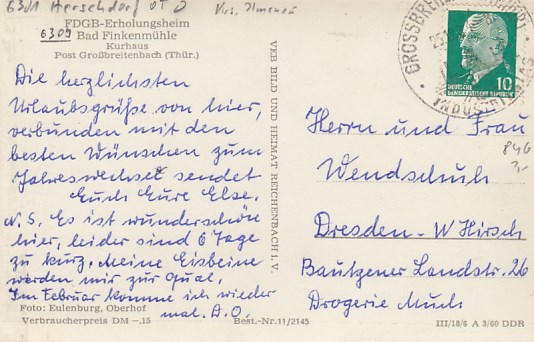 6301 Herschdorf OT
FDGB-Erholungsheim
6309 Bad Finkenmühle
Kurhaus
Post Großbreitenbach (Thür.)
Die herzlichsten
Urlaubsgrüße von hier,
verbunden mit den
besten Wünschen zum
Jahreswechsel sendet
Euch Eure Else.
N.S. Es ist wunderschön
hier, leider sind 6 Tage
zu kurz. Meine Eisbeine
werden mir zur Qual.
Im Februar komme ich wieder
mal. D.O.
Foto: Eulenburg, Oberhof
Verbraucherpreis DM -.15
Best.-Nr. 11/2145
VEB BILD UND HEIMAT REICHENBACH I. V.
10
DEUTSCHE
DEMOKRATISCHE REPUBLIK
846
Herrn und Frau
Wendschuh
Dresden-W Hirsch
Bautzener Landstr. 26
Drogerie Much
III/18/6 A 3/60 DDR